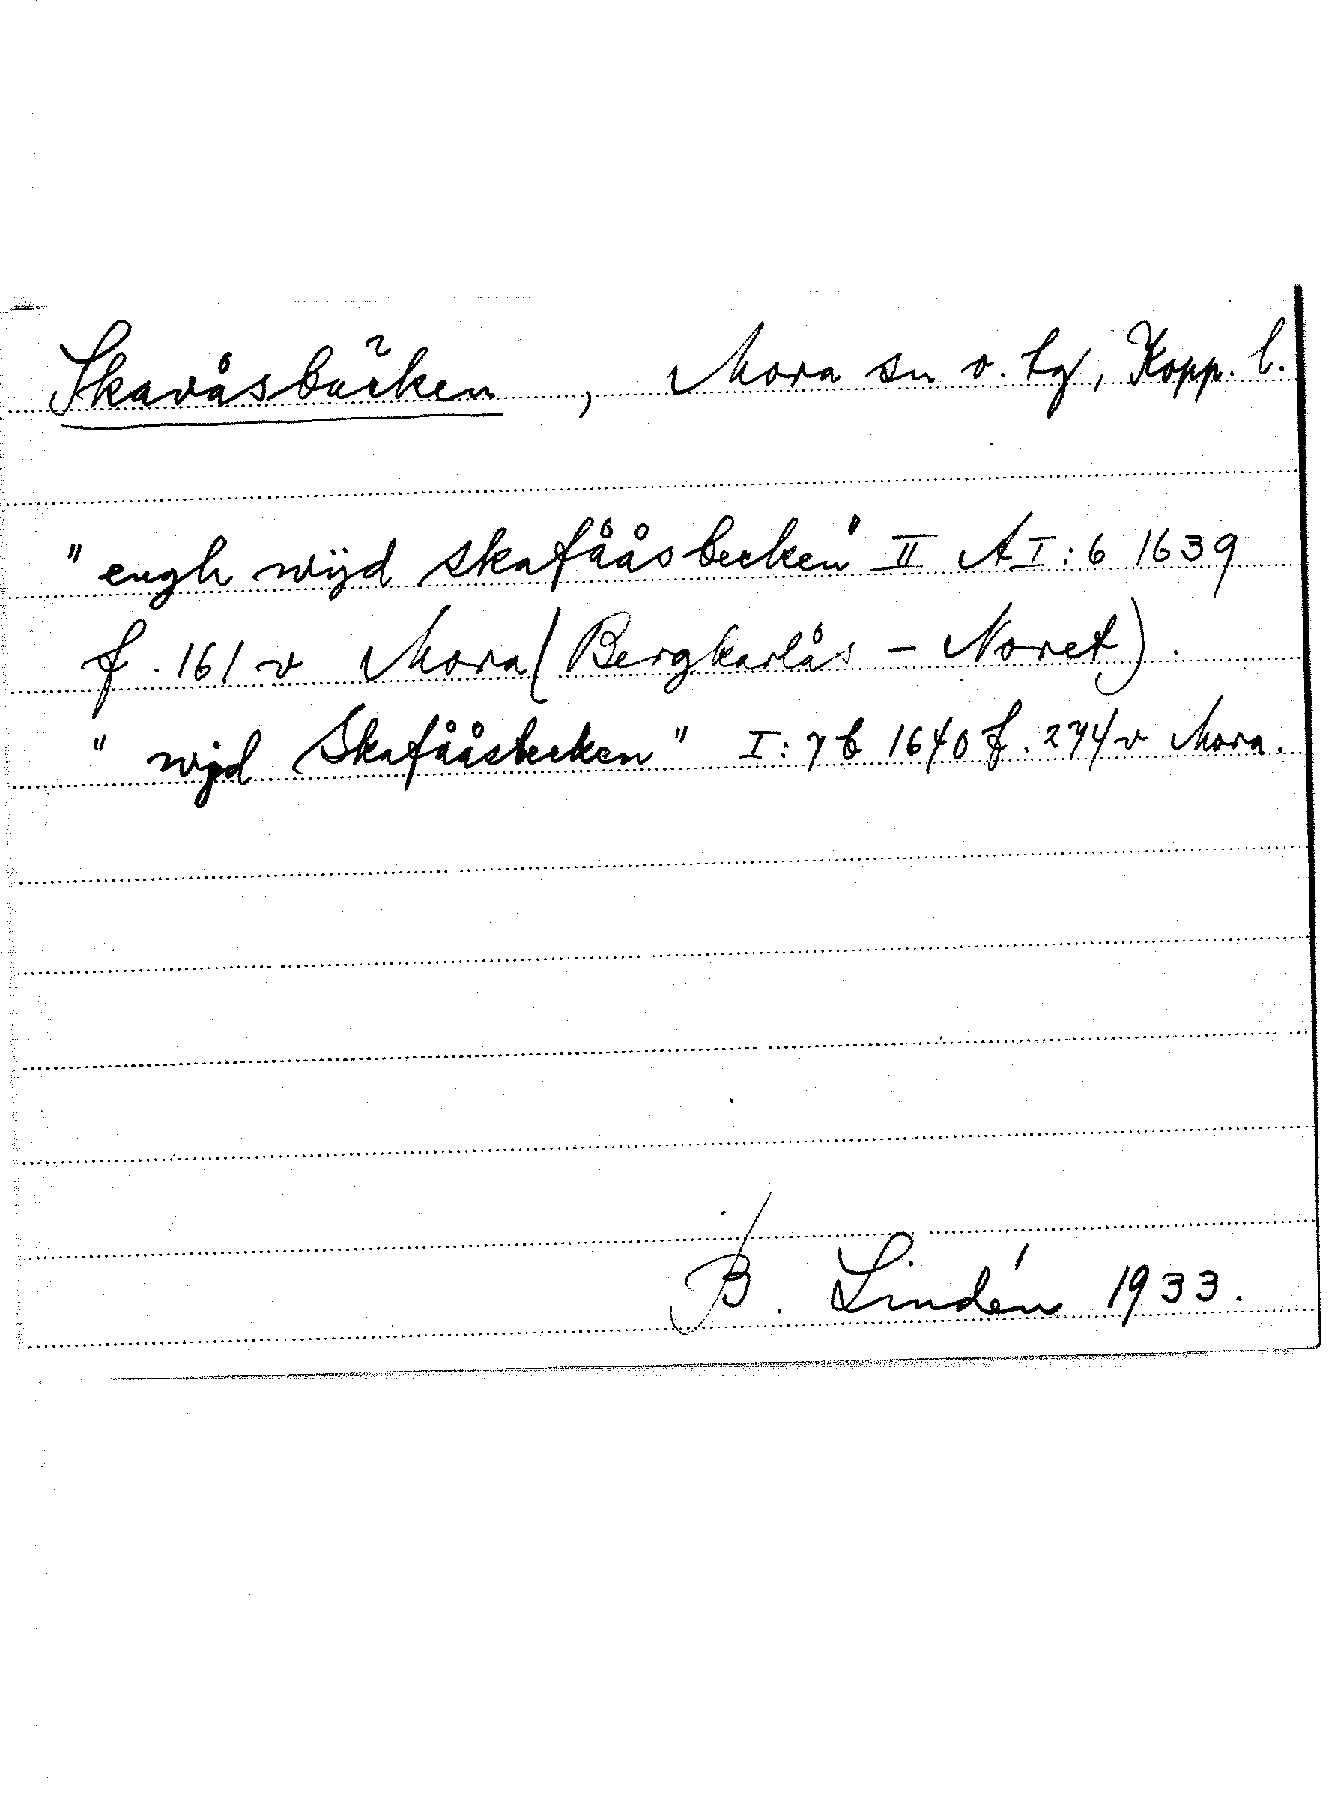 Skavåsbäcken, Mora sn o. tg, Kopp. l.
"engh wijd skafååsbecken" II A I:6 1639
f. 161 v Mora (Bergkarlås – Noret).
" wijd Skafååsbecken" I:7 b 1640 f. 274 v Mora.
B. Lindén 1933.